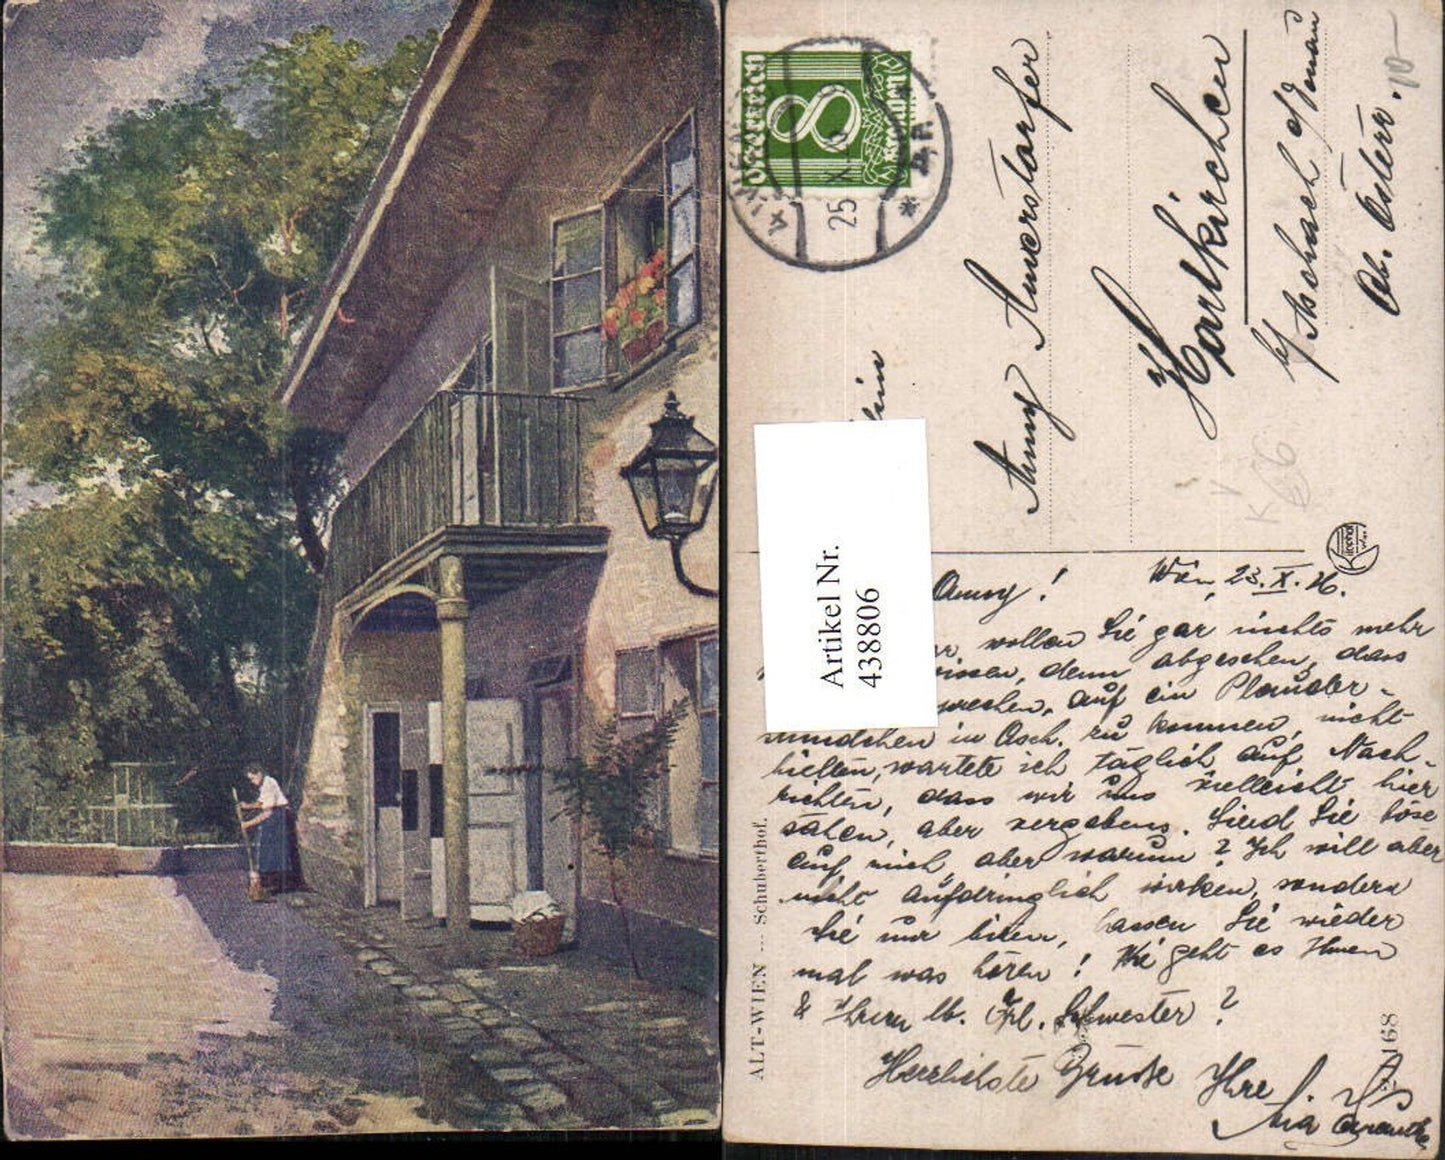 Österreich
8
Groschen
4 WIEN
25. X.
Fräulein
Anny Auerstorfer
Hartkirchen
b/ Aschach a/Donau
Ob. Österr.
10-
K V
K 66
Artikel Nr.
438806
Kilophot
Wien
Wien, 23. X. 26.
Anny!
wollen Sie gar nichts mehr
wissen, denn abgesehen, dass
auf ein Plauder-
stündchen in Asch. zu kommen, nicht
hielten, wartete ich täglich auf Nach-
richten, dass wir uns vielleicht hier
sähen, aber vergebens. Sind Sie böse
auf mich, aber warum? Ich will aber
nicht aufdringlich wirken, sondern
Sie nur bitten, lassen Sie wieder
mal was hören! Wie geht es Ihnen
& Ihrer lb. Frl. Schwester?
Herzlichste Grüsse Ihre
ALT-WIEN --- Schuberthof.
168